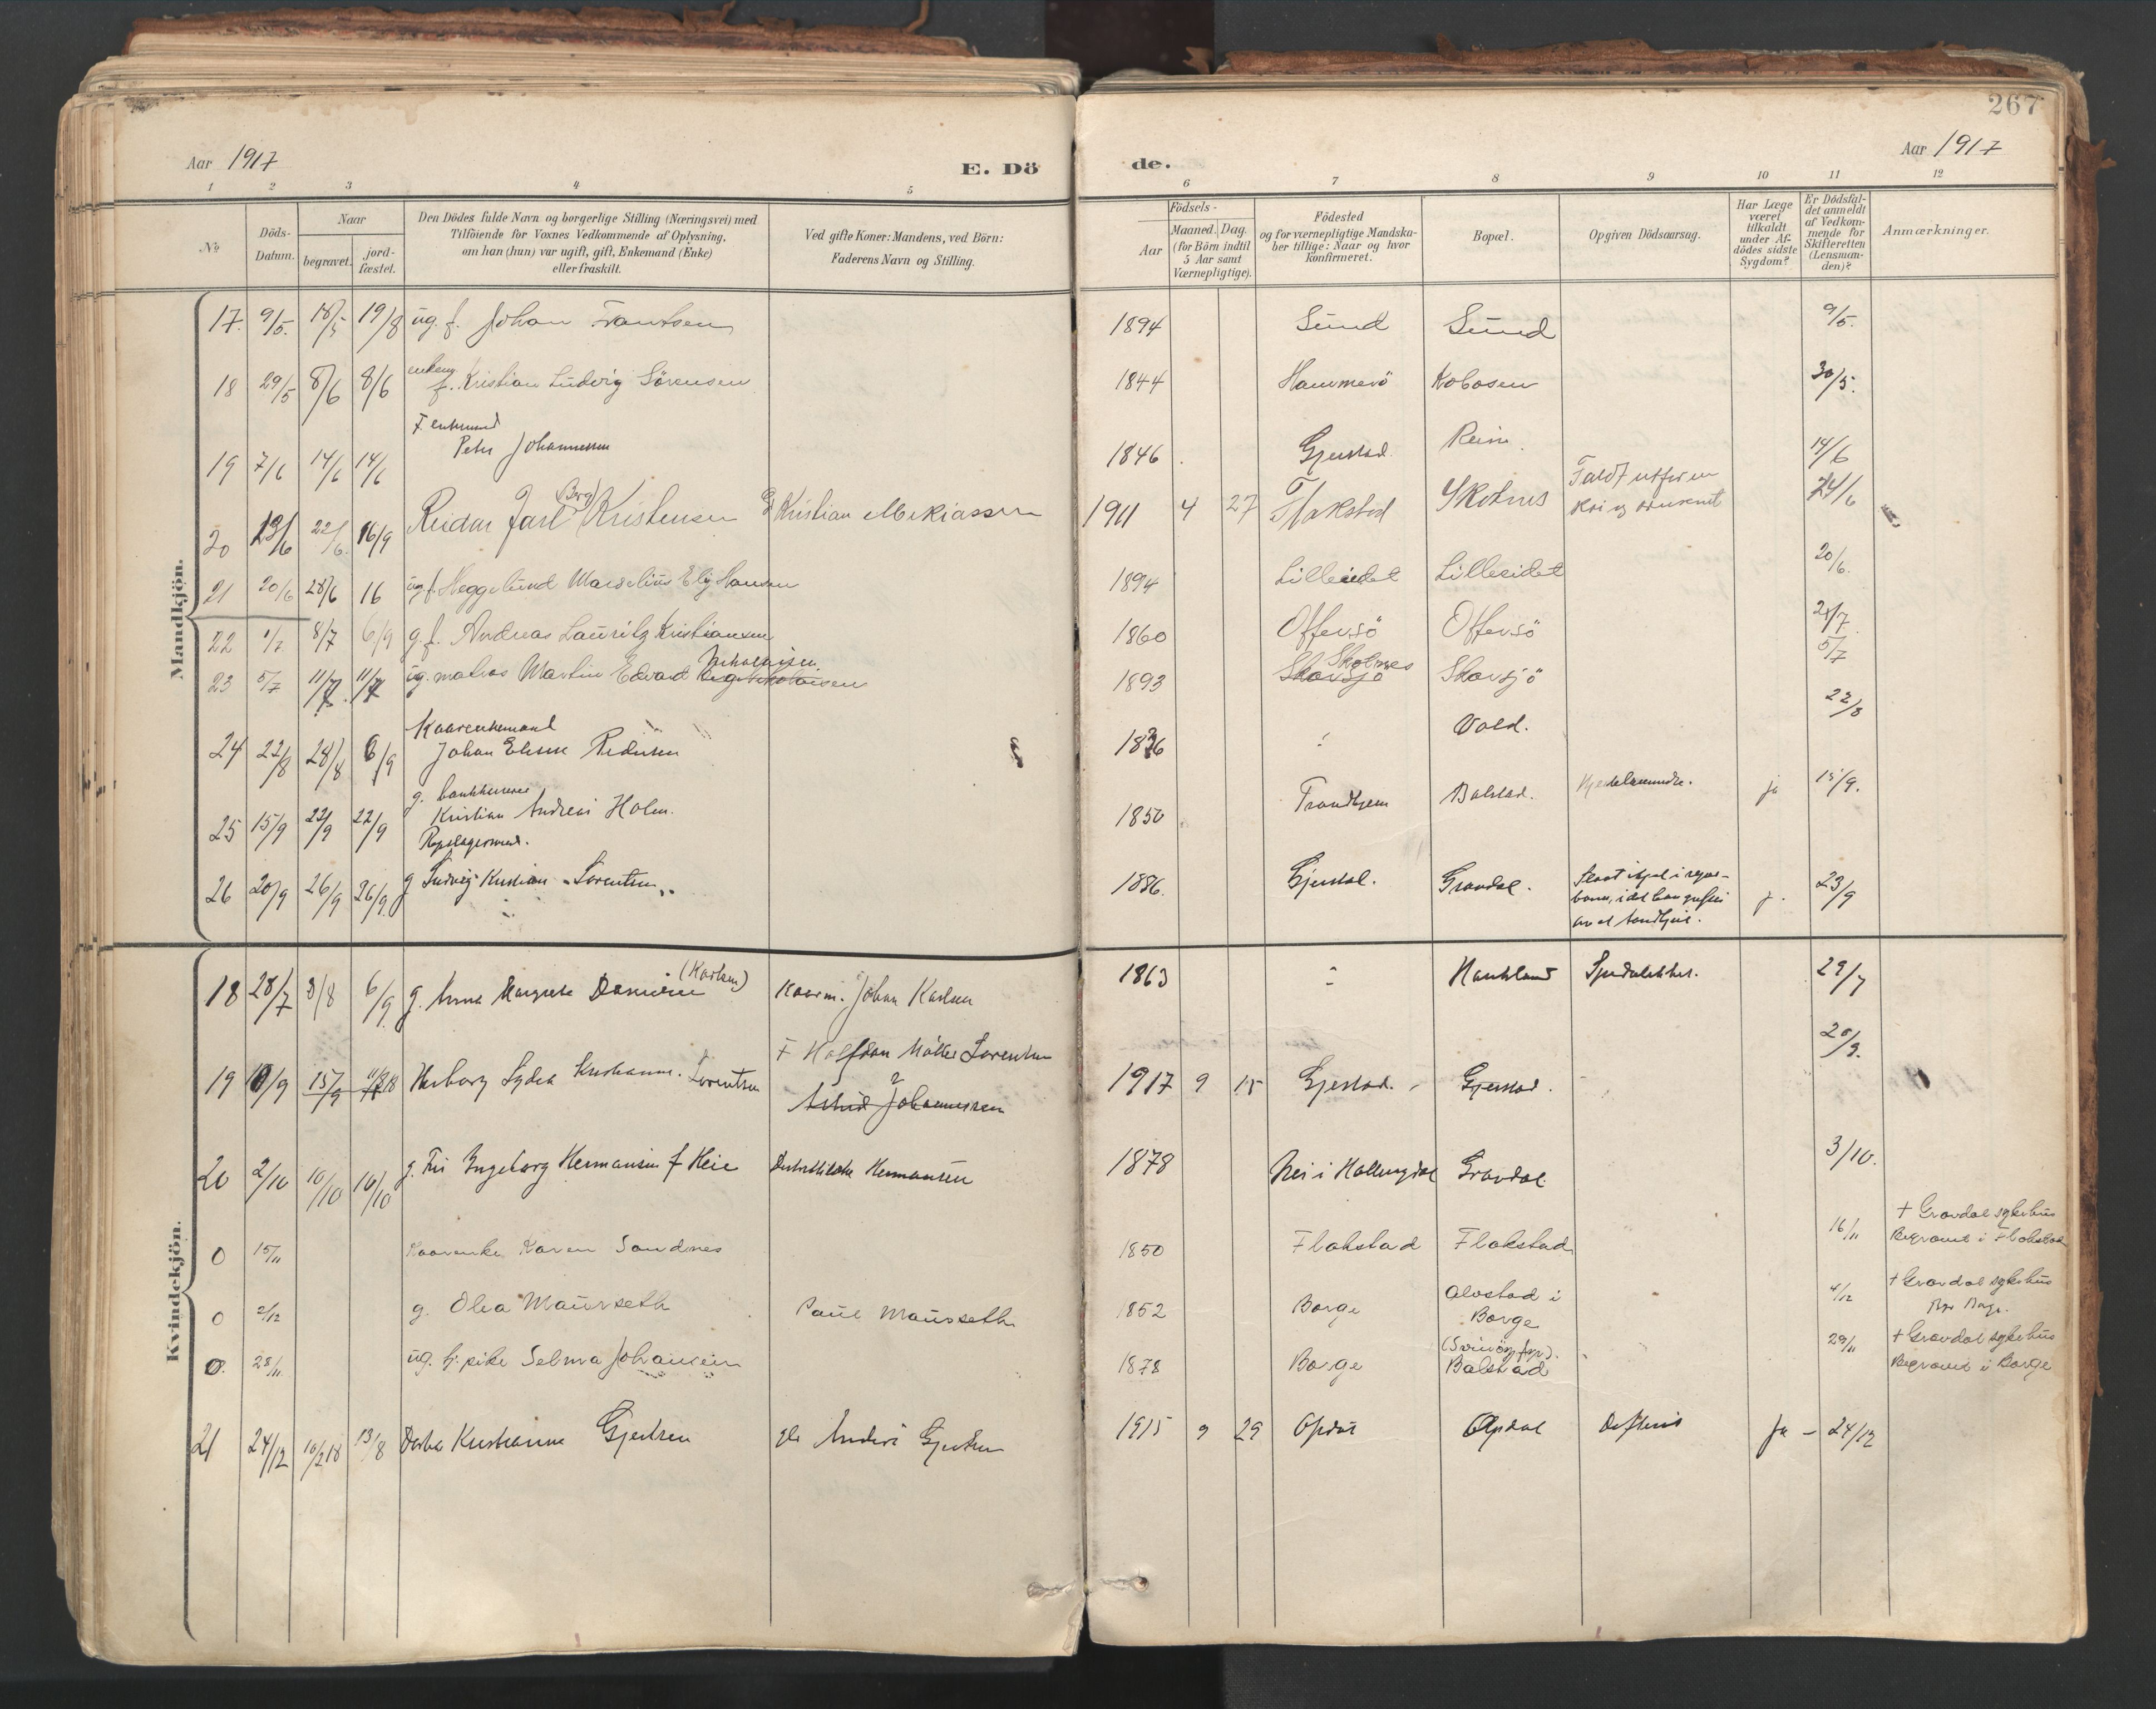 267
Aar 1917
E. Dö
de.
Aar 1917
1 2 3 4 5
6 7 8 9 10 11 12
No
Döds-
Datum.
Naar
begravet.
jord-
fæstet.
Den Dödes fulde Navn og borgerlige Stilling (Næringsvei) med
Tilföiende for Voxnes Vedkommende af Oplysning,
om han (hun) var ugift, gift, Enkemand (Enke)
eller fraskilt.
Ved gifte Koner: Mandens, ved Börn:
Faderens Navn og Stilling.
Födsels-
Aar
Maaned. Dag.
(for Börn indtil
5 Aar samt
Værnepligtige).
Födested
og for værnepligtige Mandska-
ber tillige: Naar og hvor
konfirmeret.
Bopæl.
Opgiven Dödsaarsag.
Har Læge
været
tilkaldt
under Af-
dödes sidste
Sygdom?
Er Dödsfal-
det anmeldt
af Vedkom-
mende for
Skifteretten
(Lensman-
den)?
Anmærkninger.
Mandkjön.
17. 9/5. 18/5 19/8 ug. f. Johan Frantsen 1894 Sund Sund 9/5.
18 29/5 8/6 8/6 enkem. f. Kristian Ludvig Sörensen 1844 Hammerö Kobosen 30/5.
F. enkemand
19 7/6 14/6 14/6 Peter Johannessen 1846 Gjerstad Rein 14/6
20 13/6 22/6 16/9 Reidar Jarl (Berg) Kristensen Kristian Mekiassen 1911 4 27 Flakstad Skotnes Faldt utfor en 24/6
21 20/6 28/6 16 ug f. Heggelund Marselius Eliz Hansen 1894 Lilleeidet Lilleeidet 20/6.
22 1/7 8/7 6/9 g. f. Andreas Lauritz Kristiansen 1860 Offersö Offersö 2/7
23 5/7 11/7 11/7 ug. matros Martin Edvard Nikolaisen 1893 Skotnes Skavsjö Skavsjö 5/7
Kaarenkemand
24 22/8 28/8 6/9 Johan Pedersen 18 6 Vold. 22/8
25 15/9 22/9 22/9 g. Kristian Andreas Holm. 1850 Trondhjem Balstad. ja 15/9.
Repslagermed.
26 20/9 26/9 26/9 g Ludvig Kristian Lorentsen 1886. Gjerstad. Gravdal. j. 23/9
Kvindekjön.
18 28/7 8/8 6/9 g. Anna Margrete (Karlsen) Kaarm. Johan Karlsen 1863 Haukland Spedalskhet. 29/7
19 10/9 15/9 Herborg Lydia Kristianne Lorentsen F Halfdan Möller Lorentsen 1917 9 15 Gjerstad. Gjerstad.
Astrid Johannessen
20 2/10 10/10 10/10 g. Fru Ingeborg Hermansen f Heie Hermansen 1878 Nes i Hallingdal Gravdal 3/10.
0 15/11 Kaarenke Karen Sandnes 1850 Flakstad Flakstad 16/11 + Gravdal sykehus
Begravet i Flakstad
0 2/12 g. Olea Maurseth Paul Maurseth 1852 Borge Alstad i Borge 4/12 + Gravdal sykehus
0. 28/11 ug. tj. pike Selma Johansen 1878 Borge Balstad 29/11 + Gravdal sykehus
Begravet i Borge
21 24/12 10/2 18 13/8 Kristianna Gjertsen Anders Gjertsen 1915 9 29 Opdal Opdal Ja - 24/12